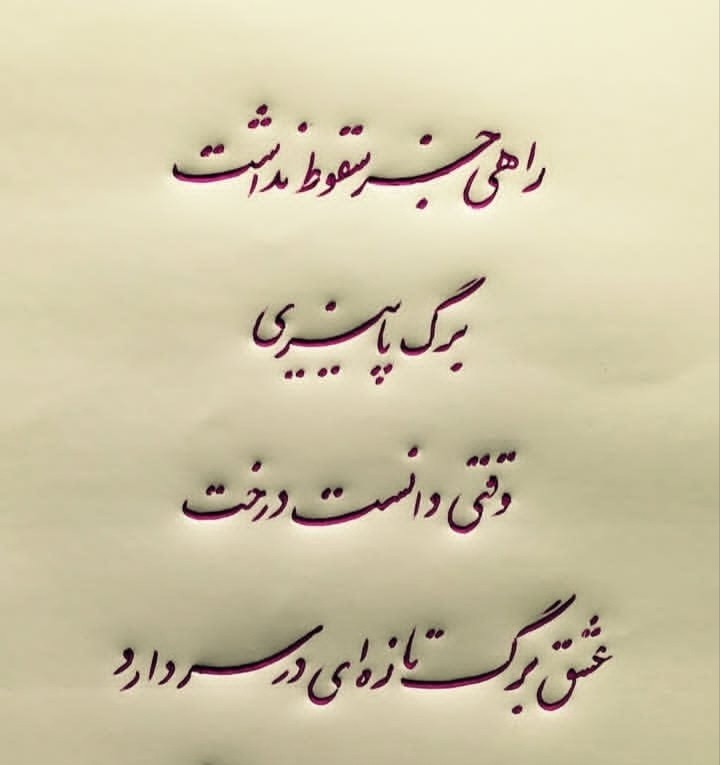 راهی جز سقوط نداشت
برگ پاییزی
وقتی دانست درخت
عشق برگ تازه‌ای در سر دارد